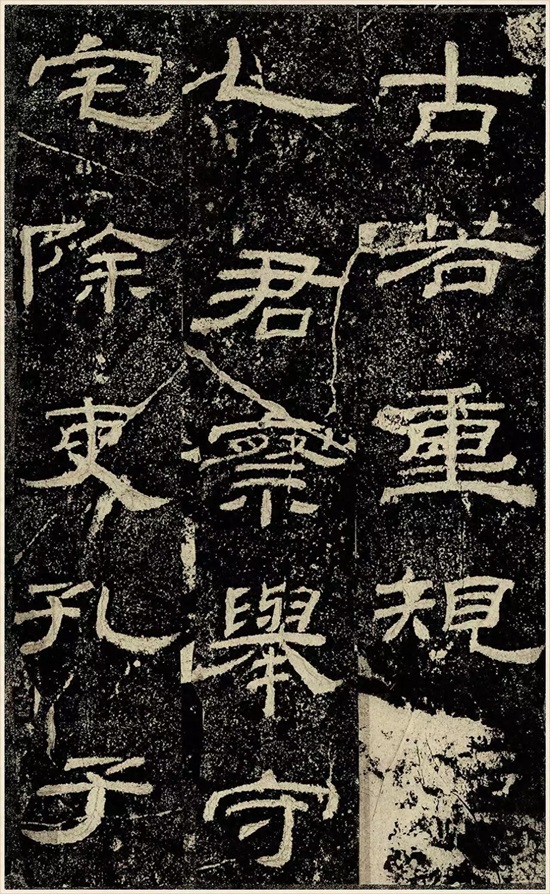 古若重規
乙君察舉守
宅除吏孔子